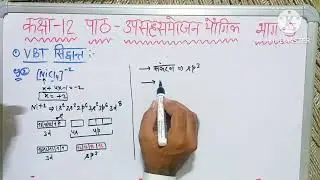 कक्षा-12 पाठ - उपसहसंयोजन यौगिक भाग
① VBT सिद्धान्त :-
[NiCl₄]⁻²
x + 4x-1 = -2
x = +2
Ni⁺² → 1s² 2s² 2p⁶ 3s² 3p⁶ 3d⁸
3d 4s 4p
3d sp³
→ संकरण ⇒ sp³
→